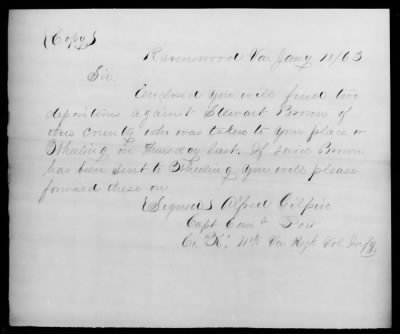 {Copy}
Ravenswood Va. Jany 18/63
Sir
Enclosed you will find two
depositions against Stewart Brown of
this county who was taken to your place or
Wheeling on Thursday last. If said Brown
has been sent to Wheeling you will please
forward these on
{Signed} Alfred Gilpin
Capt Com d Post
Co. "K" 11th Va Regt Vol Infy